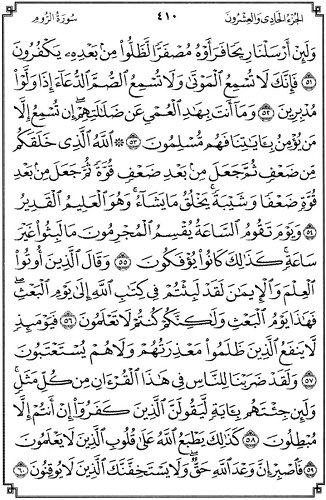 الجزء الحادي والعشرون ٤١٠ سورة الروم
وَلَئِنْ أَرْسَلْنَا رِيحًا فَرَأَوْهُ مُصْفَرًّا لَّظَلُّوا۟ مِنۢ بَعْدِهِۦ يَكْفُرُونَ
﴿٥١﴾ فَإِنَّكَ لَا تُسْمِعُ ٱلْمَوْتَىٰ وَلَا تُسْمِعُ ٱلصُّمَّ ٱلدُّعَآءَ إِذَا وَلَّوْا۟
مُدْبِرِينَ ﴿٥٢﴾ وَمَآ أَنتَ بِهَٰدِ ٱلْعُمْىِ عَن ضَلَٰلَتِهِمْ ۖ إِن تُسْمِعُ إِلَّا
مَن يُؤْمِنُ بِـَٔايَٰتِنَا فَهُم مُّسْلِمُونَ ﴿٥٣﴾ ۞ ٱللَّهُ ٱلَّذِى خَلَقَكُم
مِّن ضَعْفٍ ثُمَّ جَعَلَ مِنۢ بَعْدِ ضَعْفٍ قُوَّةً ثُمَّ جَعَلَ مِنۢ بَعْدِ
قُوَّةٍ ضَعْفًا وَشَيْبَةً ۚ يَخْلُقُ مَا يَشَآءُ ۖ وَهُوَ ٱلْعَلِيمُ ٱلْقَدِيرُ
﴿٥٤﴾ وَيَوْمَ تَقُومُ ٱلسَّاعَةُ يُقْسِمُ ٱلْمُجْرِمُونَ مَا لَبِثُوا۟ غَيْرَ
سَاعَةٍ ۚ كَذَٰلِكَ كَانُوا۟ يُؤْفَكُونَ ﴿٥٥﴾ وَقَالَ ٱلَّذِينَ أُوتُوا۟
ٱلْعِلْمَ وَٱلْإِيمَٰنَ لَقَدْ لَبِثْتُمْ فِى كِتَٰبِ ٱللَّهِ إِلَىٰ يَوْمِ ٱلْبَعْثِ ۖ
فَهَٰذَا يَوْمُ ٱلْبَعْثِ وَلَٰكِنَّكُمْ كُنتُمْ لَا تَعْلَمُونَ ﴿٥٦﴾ فَيَوْمَئِذٍ
لَّا يَنفَعُ ٱلَّذِينَ ظَلَمُوا۟ مَعْذِرَتُهُمْ وَلَا هُمْ يُسْتَعْتَبُونَ
﴿٥٧﴾ وَلَقَدْ ضَرَبْنَا لِلنَّاسِ فِى هَٰذَا ٱلْقُرْءَانِ مِن كُلِّ مَثَلٍ ۚ
وَلَئِن جِئْتَهُم بِـَٔايَةٍ لَّيَقُولَنَّ ٱلَّذِينَ كَفَرُوٓا۟ إِنْ أَنتُمْ إِلَّا
مُبْطِلُونَ ﴿٥٨﴾ كَذَٰلِكَ يَطْبَعُ ٱللَّهُ عَلَىٰ قُلُوبِ ٱلَّذِينَ لَا يَعْلَمُونَ
﴿٥٩﴾ فَٱصْبِرْ إِنَّ وَعْدَ ٱللَّهِ حَقٌّ ۖ وَلَا يَسْتَخِفَّنَّكَ ٱلَّذِينَ لَا يُوقِنُونَ ﴿٦٠﴾